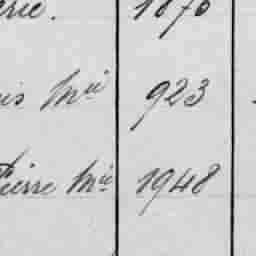 rie. 1876
is Mie 923
Pierre Mie 1948